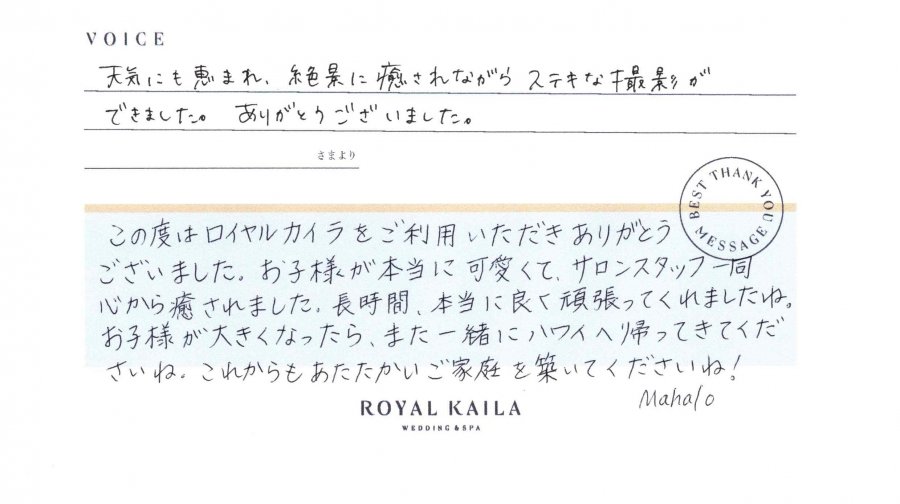 VOICE
天気にも恵まれ、絶景に癒されながら ステキな撮影が
できました。 ありがとうございました。
さまより
BEST THANK YOU MESSAGE
この度はロイヤルカイラをご利用いただきありがとう
ございました。お子様が本当に可愛くて、サロンスタッフ一同
心から癒されました。長時間、本当に良く頑張ってくれましたね。
お子様が大きくなったら、また一緒にハワイへ帰ってきてくだ
さいね。これからもあたたかいご家庭を築いてくださいね!
Mahalo
ROYAL KAILA
WEDDING & SPA